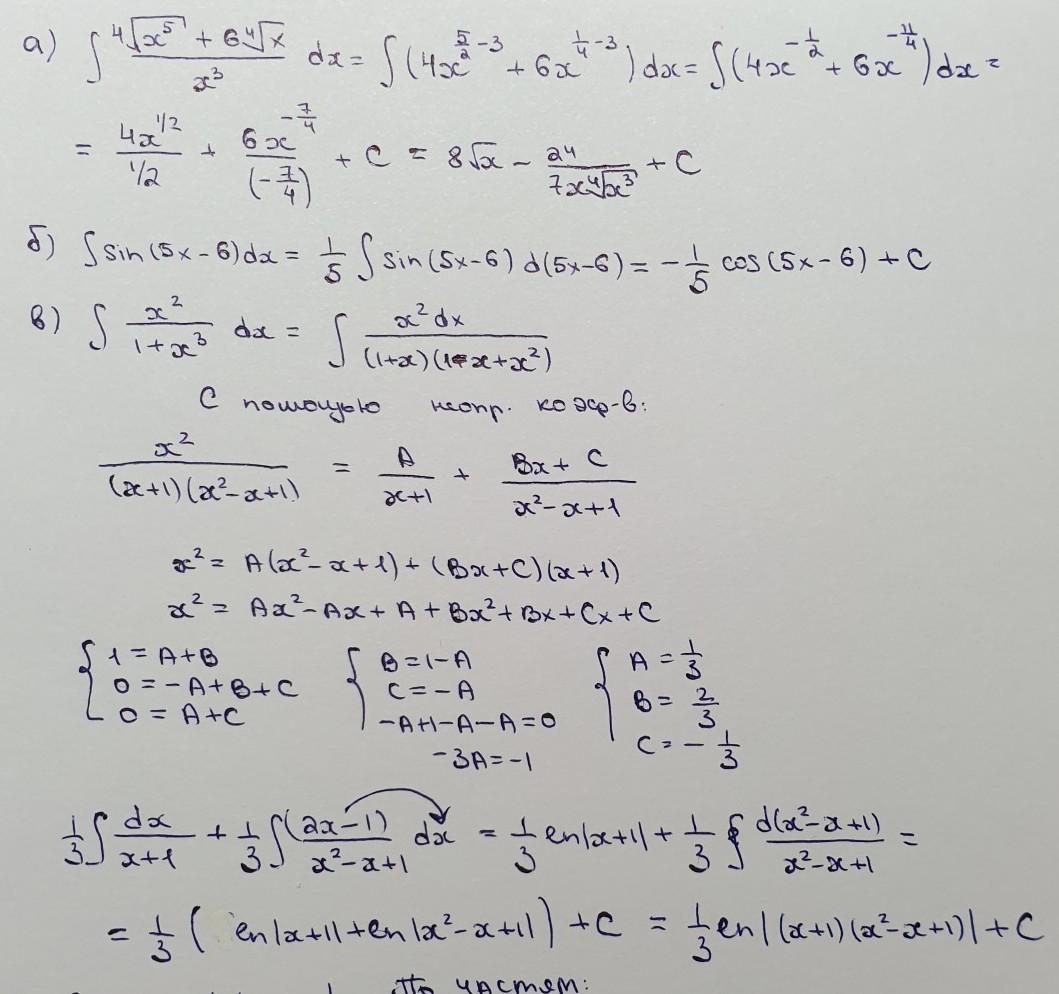 а) ∫ (4√(x⁵) + 6⁴√x)/x³ dx = ∫(4x^(5/2 - 3) + 6x^(1/4 - 3)) dx = ∫(4x^(-1/2) + 6x^(-11/4)) dx =
= 4x^(1/2)/(1/2) + 6x^(-7/4)/(-7/4) + C = 8√x - 24/(7x⁴√(x³)) + C
б) ∫ sin(5x-6)dx = 1/5 ∫ sin(5x-6) d(5x-6) = -1/5 cos(5x-6) + C
в) ∫ x²/(1+x³) dx = ∫ x²dx/((1+x)(1-x+x²))
С помощью неопр. коэф-в:
x²/((x+1)(x²-x+1)) = A/(x+1) + (Bx+C)/(x²-x+1)
x² = A(x²-x+1) + (Bx+C)(x+1)
x² = Ax²-Ax+A+Bx²+Bx+Cx+C
{ 1 = A+B { B=1-A { A = 1/3
0 = -A+B+C C=-A B = 2/3
0 = A+C -A+1-A-A=0 C = -1/3
-3A=-1
1/3 ∫ dx/(x+1) + 1/3 ∫ (2x-1)/(x²-x+1) dx = 1/3 ln|x+1| + 1/3 ∫ d(x²-x+1)/(x²-x+1) =
= 1/3 ( ln|x+1| + ln|x²-x+1| ) + C = 1/3 ln|(x+1)(x²-x+1)| + C
По частям: